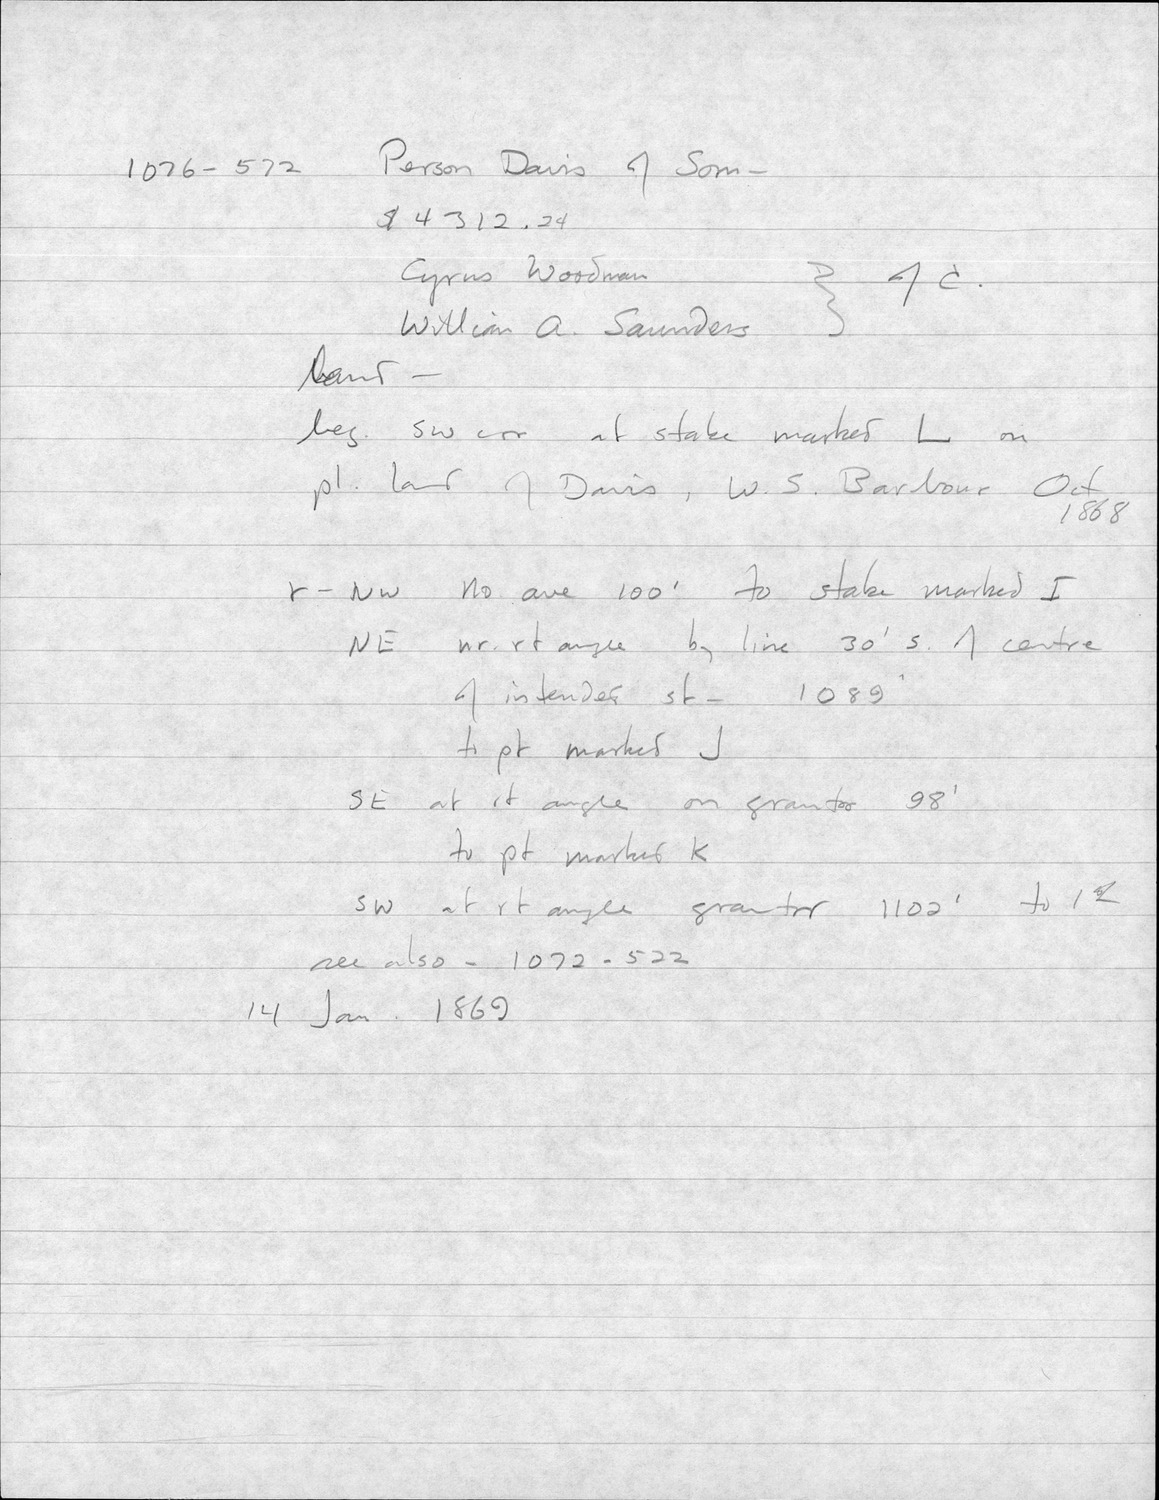 1076-572 Person Davis of Som-
$4312.24
Cyrus Woodman
William A. Saunders } of C.
land -
beg. SW cor at stake marked L on
pl. land of Davis, W. S. Barbour Oct
1868
r - NW No ave 100' to stake marked I
NE nr. rt angle by line 30' s. of centre
of intended st - 1089'
to pt marked J
SE at rt angle on grantor 98'
to pt marked K
SW at rt angle grantor 1102' to 1st
see also - 1072-522
14 Jan. 1869